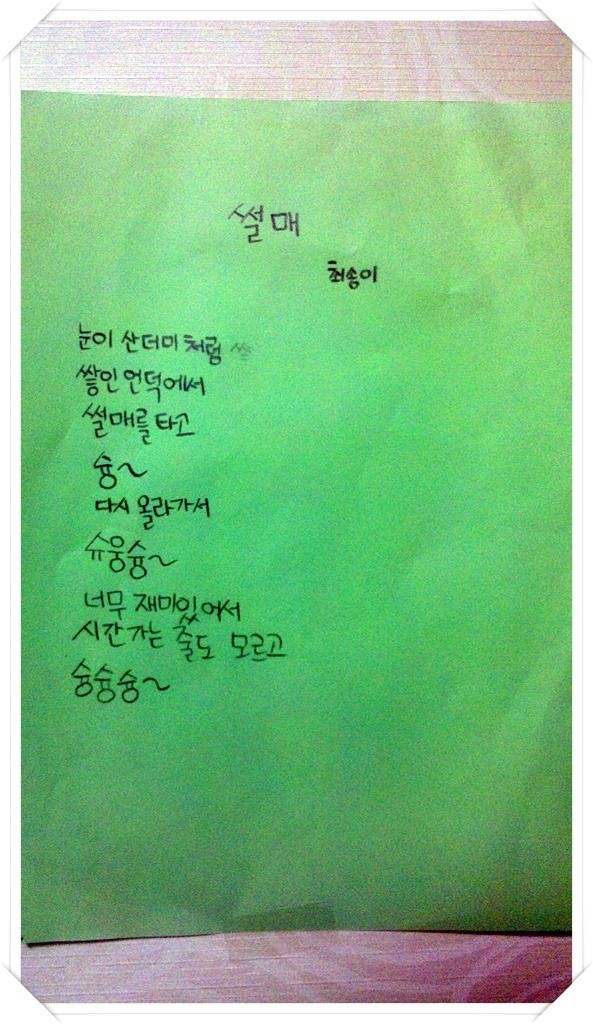 썰매
최송이
눈이 산더미처럼
쌓인 언덕에서
썰매를 타고
슝~
다시 올라가서
슈웅슝~
너무 재미있어서
시간가는 줄도 모르고
슝슝슝~